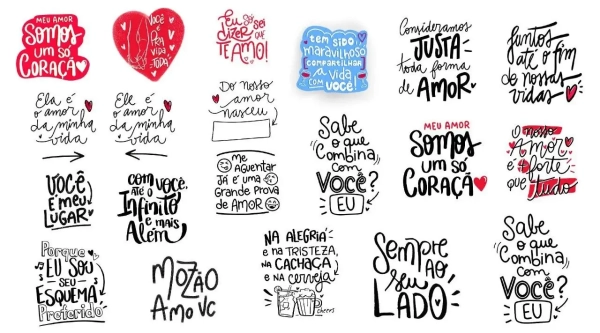 MEU AMOR
SOMOS
UM SÓ
CORAÇÃ
VOCÊ
É PRA
VIDA
TODA
Eu só sei
dizer que
TE AMO!
tem sido
maravilhoso
compartilhar
a vida
com você!
Consideramos
JUSTA
toda forma
de
AMOR
Juntos
até o fim
de nossas
vidas
Ela é
o amor
da minha
vida
Ele é
o amor
da minha
vida
Do nosso
amor
nasceu
Sabe
o que
Combina
com
VOCÊ?
EU
MEU AMOR
SOMOS
UM SÓ
CORAÇÃ
O nosso
Amor
é + forte
que tudo
VOCÊ
É MEU
LUGAR
com você,
ATÉ O
Infinito
e mais
Além
Me
AGUENTAR
JÁ É UMA
Grande Prova
de AMOR
Porque
EU SOU
SEU
ESQUEMA
Preferido
MOZÃO
Amo VC
NA ALEGRIA
e na TRISTEZA,
NA CACHAÇA
e NA cerveja
cheers
Sempre
AO
seu
LADO
Sabe
o que
Combina
com
VOCÊ?
EU